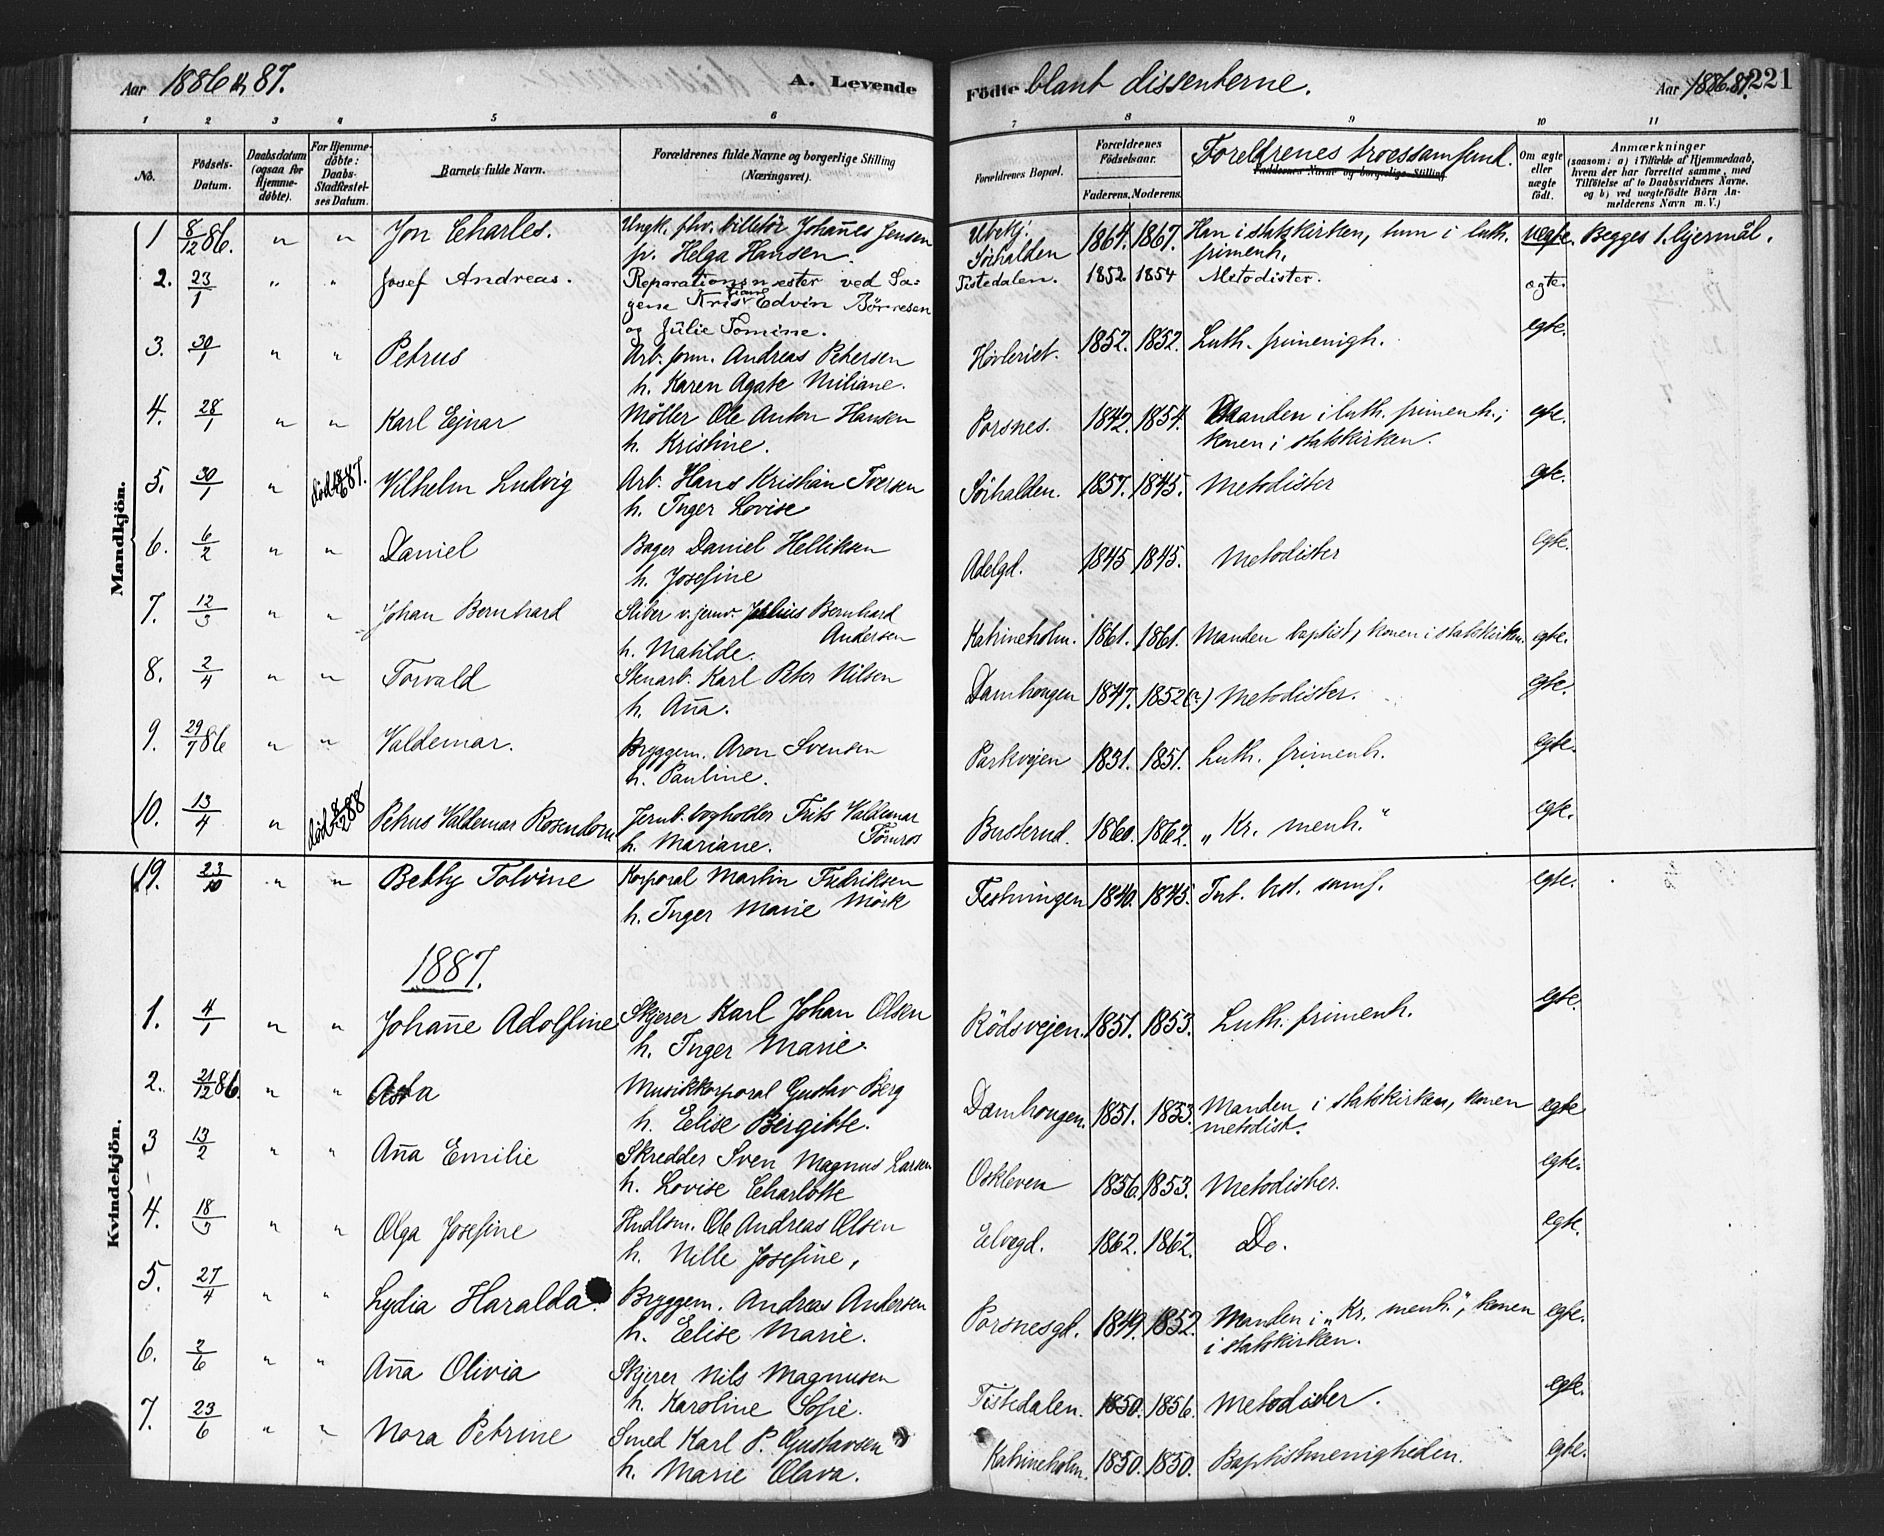 Aar 1886 & 87. A. Levende
Födte blant dissenterne. Aar 1886.87. 221
1 2 3 4 5 6 7 8 9 10 11
No.
Födsels-Datum.
Daabsdatum (ogsaa for Hjemmedöbte).
For Hjemmedöbte: Daabs-Stadfæstelses Datum.
Barnets fulde Navn.
Forældrenes fulde Navne og borgerlige Stilling (Næringsvei).
Forældrenes Bopæl.
Forældrenes Födselsaar.
Faderens. Moderens.
Foreldrenes troessamfund.
Faddernes Navne og borgerlige Stilling
Om ægte eller uægte födt.
Anmærkninger
(saasom: a) i Tilfælde af Hjemmedaab, hvem der har forrettet samme, med Tilföielse af to Daabsvidners Navne, og b) ved uægtefödte Börn Anmelderens Navn m. V.)
Mandkjön.
1 8/12 86. " " Jon Charles. Ungk. fhv. billetör Johannes Jensen
p. Helga Hansen. Ubekj. Sörhalden 1864. 1867. Han i statskirken, hun i luth. frimenh. uegte. Begges 1. lejermål.
2. 23/1 " " Josef Andreas. Reparationsmester ved Sagene Kristian Edvin Börresen
og Julie Tomine. Tistedalen. 1852 1854 Metodister. ægte.
3. 30/1 " " Petrus Arb. form. Andreas Petersen
h. Karen Agate Miliane. Hovleriet. 1852. 1852. Luth. frimenigh. egte.
4. 28/1 " " Karl Ejnar Möller Ole Anton Hansen
h. Kristine. Porsnes. 1842. 1854. Manden i luth. frimenh.; konen i statskirken. egte.
5. 30/1 " död 87. Vilhelm Ludvig Arb. Hans Kristian Iversen
h. Inger Lovise Sörhalden. 1857. 1845. Metodister egte.
6. 6/2 " " Daniel Bager Daniel Helliksen
h. Josefine Adelgd. 1845 1845. Metodister egte.
7. 12/3 " " Johan Bernhard Stiber v. jernv. Julius Bernhard Andersen
h. Matilde. Katrineholm. 1861. 1861. Manden baptist, konen i statskirken. egte.
8. 2/4 " " Torvald Stenarb. Karl Peter Nilsen
h. Anna. Damhougen 1847. 1852(?) Metodister. egte.
9. 29/7 86 " " Valdemar. Bryggem. Aron Svensen
h. Pauline. Parkvejen 1831. 1851. Luth. frimenh. egte.
10. 13/4 " död 88 Petrus Valdemar Rosendorn Jernb. bogholder Frits Valdemar Tömros
h. Mariane. Busterud. 1860. 1862. "Kr. menh." egte.
19. 23/10 " " Betty Tolvine Korporal Martin Fredriksen Mörk
h. Inger Marie Festningen 1840. 1845. Int. bst. samf. egte.
1887.
Kvindekjön.
1. 4/1 " " Johanne Adolfine Skjerer Karl Johan Olsen
h. Inger Marie. Rödsvejen. 1851. 1853. Luth. frimenh. egte.
2. 21/12 86. " " Asta Musikkorporal Gustav Berg
h. Elise Birgitte. Damhougen. 1851. 1853. Manden i statskirken, konen metodist. egte
3 13/2 " " Anna Emilie Skredder Sven Magnus Larsen
h. Lovise Charlotte Oskleven 1856. 1853. Metodister. egte.
4. 18/3 " " Olga Josefine Hndlsm. Ole Andreas Olsen
h. Nille Josefine, Elvegd. 1862. 1862. Do. egte.
5. 27/4 " " Lydia Haralda. Bryggem. Andreas Andersen
h. Elise Marie. Porsnesgd. 1849. 1852. Manden i "Kr. menh.", konen i statskirken. egte.
6. 2/6 " " Anna Olivia Skjerer Nils Magnusen
h. Karoline Sofie. Tistedalen. 1850. 1856. Metodister. egte.
7. 23/6 " " Nora Petrine Smed Karl P. Gustavsen
h. Marie Olava. Katrineholm. 1850. 1850. Baptistmenigheden. egte.